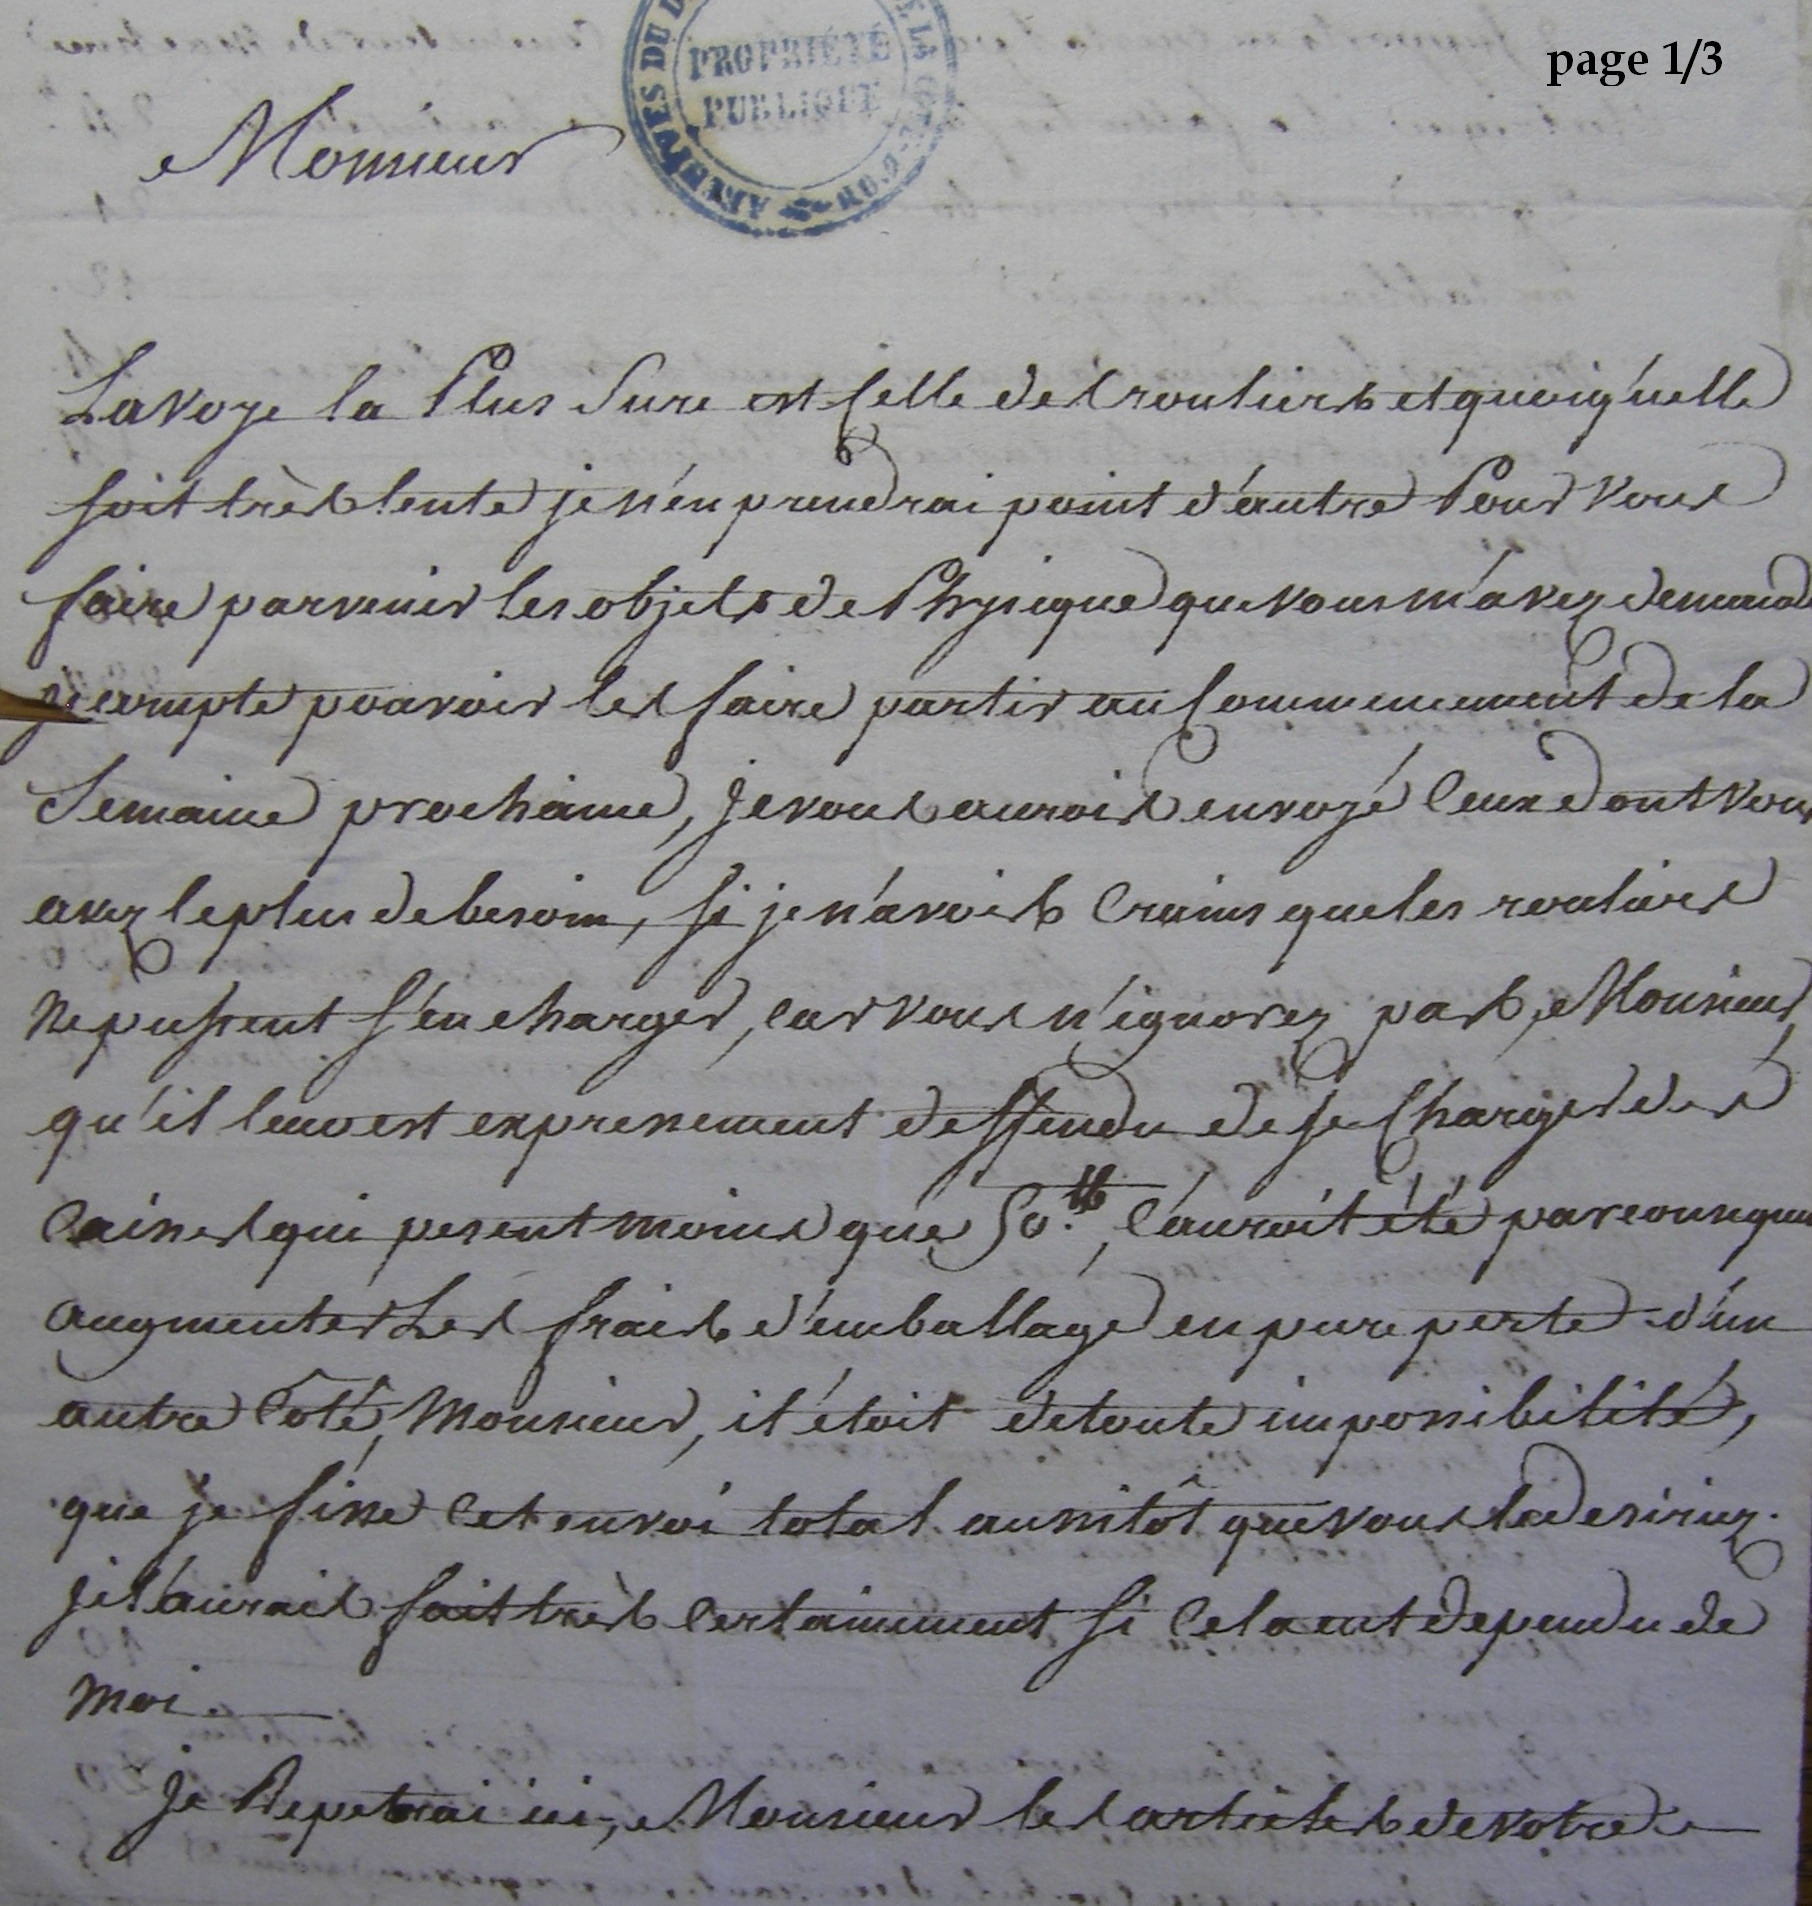 page 1/3
ARCHIVES DU D LA CÔTE-D'OR
PROPRIÉTÉ
PUBLIQUE
Monsieur
La voye la Plus Sure est Celle des rouliers et quoiqu'elle
soit très lente je n'en prendrai point d'autre Pour vous
faire parvenir les objets de Physique que vous m'avez demandé
je compte pouvoir les faire partir au Commencement de la
Semaine prochaine, je vous aurois envoyé Ceux dont vous
avez le plus de besoin, si je n'avois Crains que les rouliers
ne pussent s'en charger, car vous n'ignorez pas, Monsieur,
qu'il leur est expressement deffendu de se Charger des
Caisses qui pesent moins que 50.# C'auroit été par consequen
augmenter Les frais d'emballage en pure perte d'un
autre Côté, Monsieur, il étoit de toute impossibilité,
que je fisse Cet envoi total aussitôt que vous le desiriez.
je l'aurais fait très Certainement si Cela eut dependu de
moi.
Je Repeterai ici, Monsieur les articles de votre